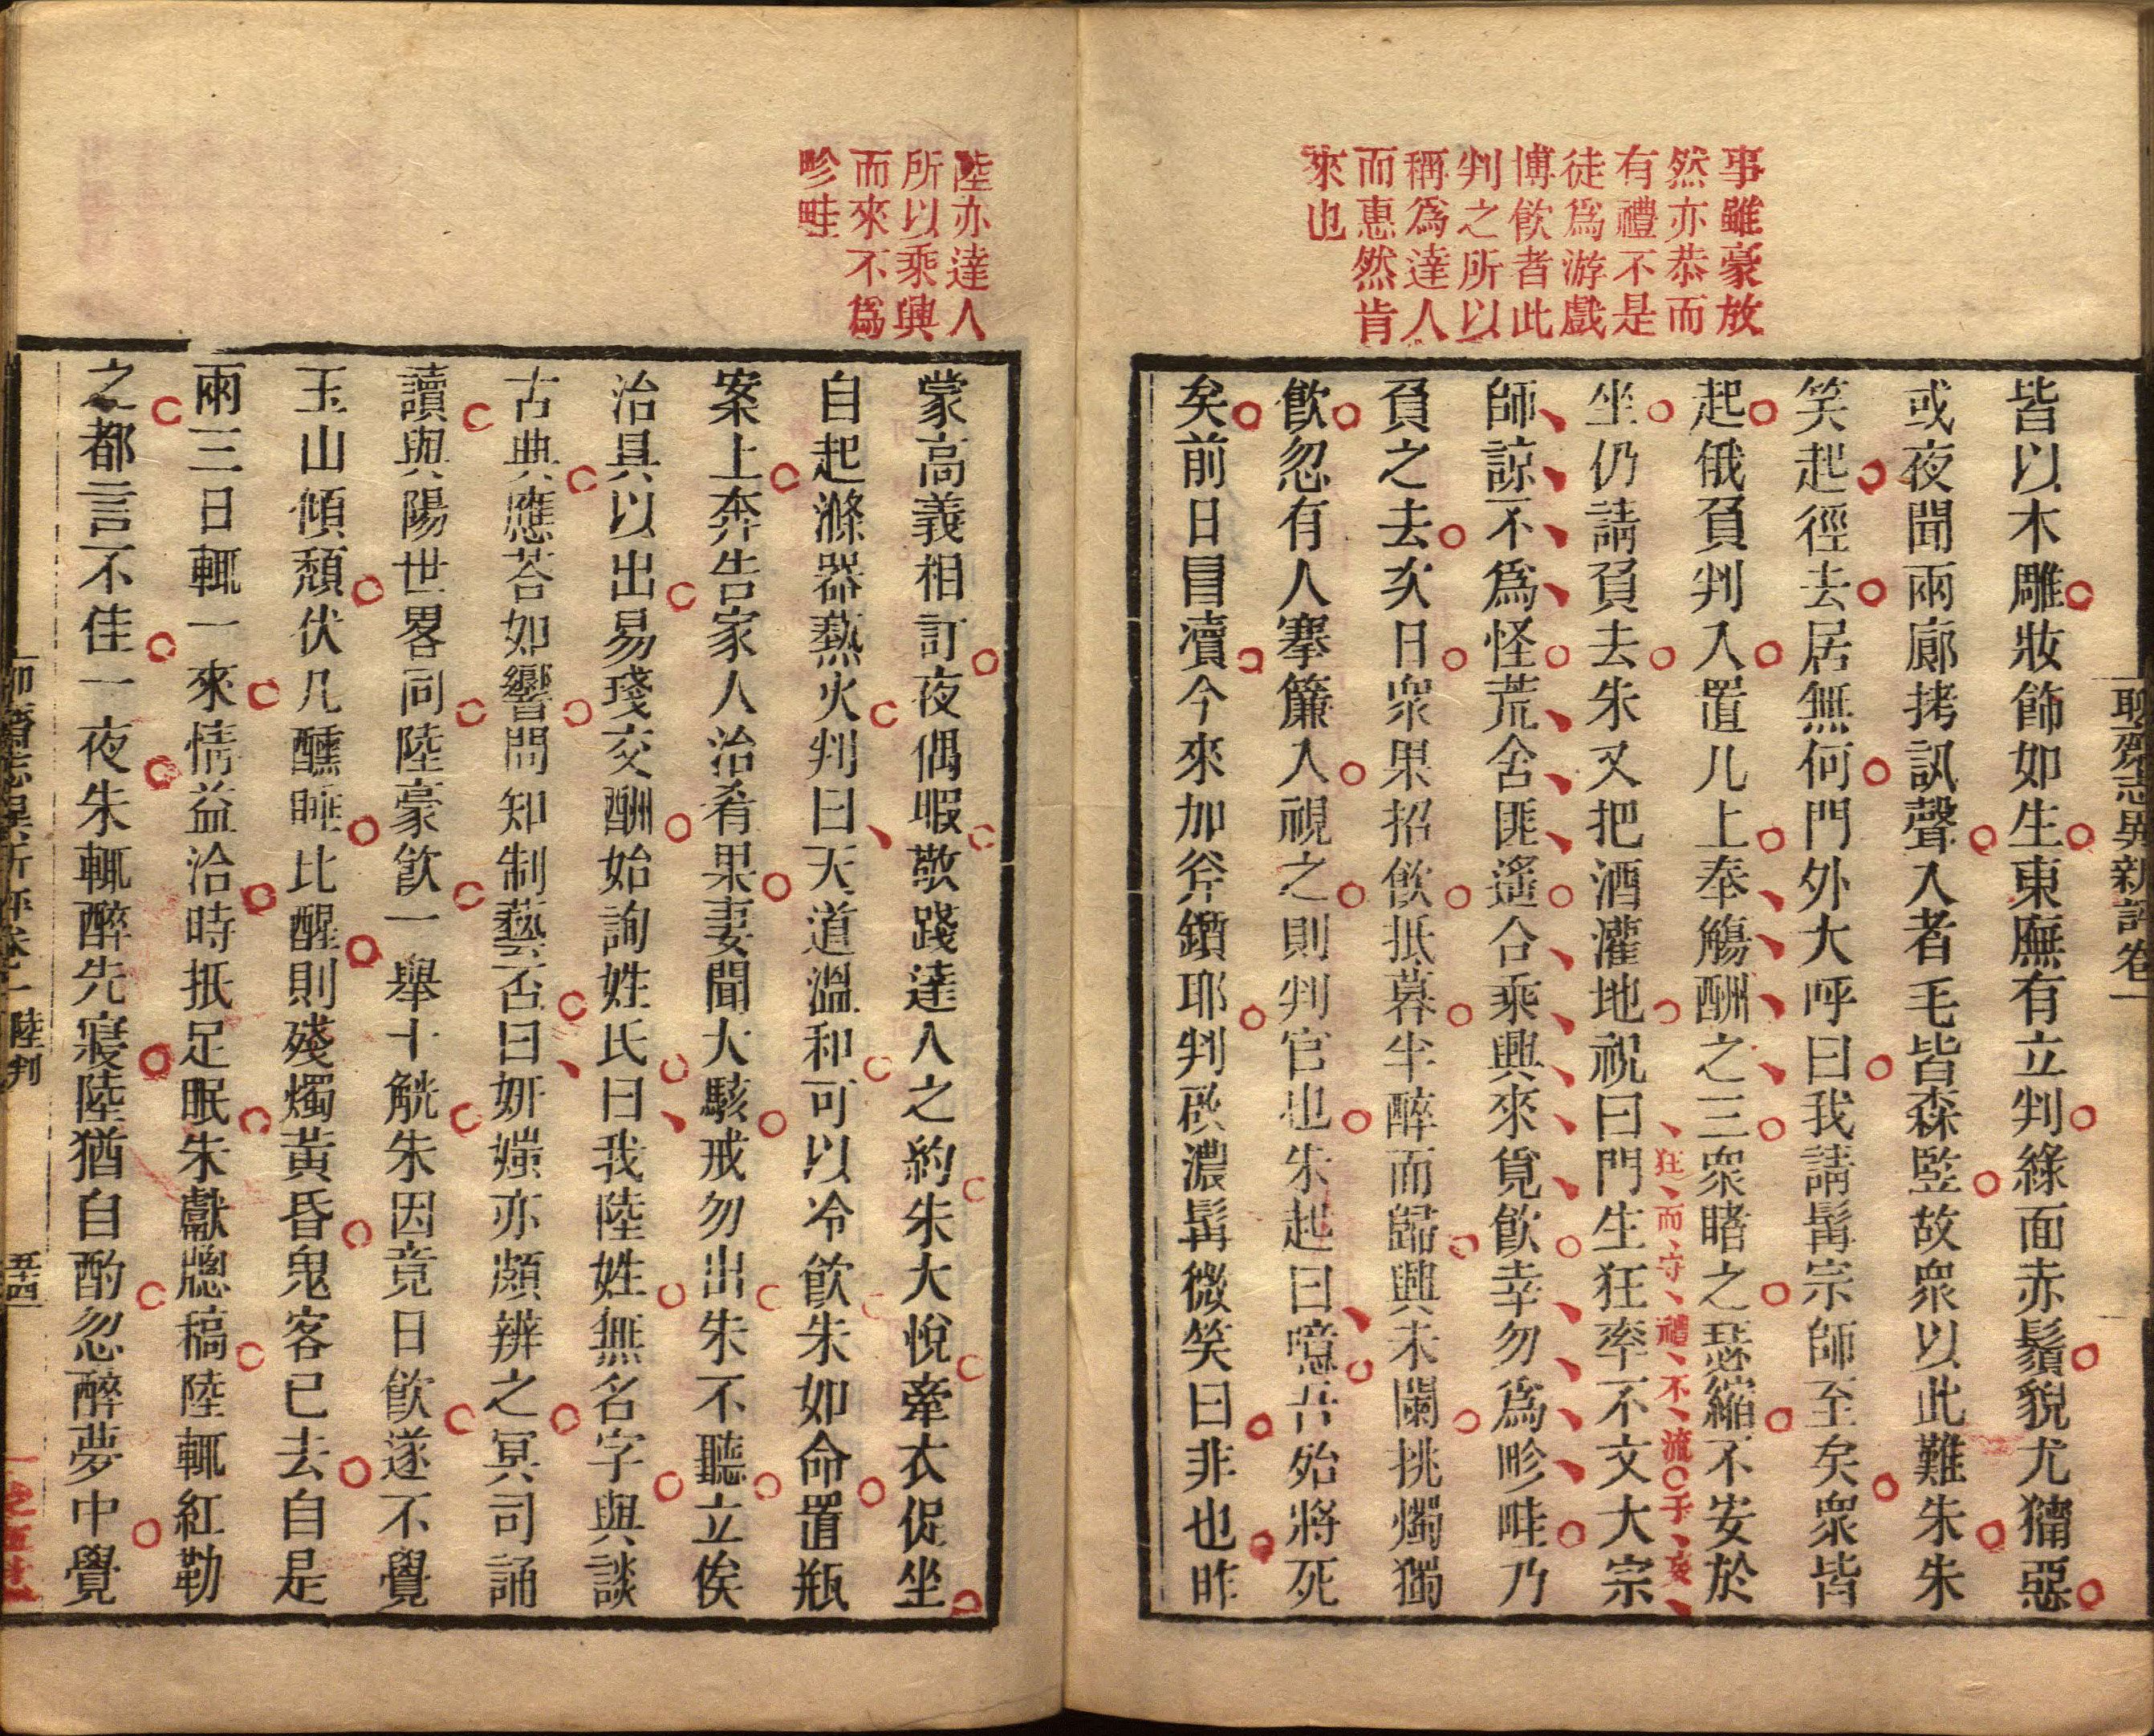 聊齋志異新評卷一
事雖豪放
然亦恭而
有禮不是
徒爲游戲
博飮者此
判之所以
稱爲達人
而惠然肯
來也
皆以木雕妝飾如生東廡有立判綠面赤鬚貌尤獰惡
或夜聞兩廊拷訊聲入者毛皆森竪故衆以此難朱朱
笑起徑去居無何門外大呼曰我請髯宗師至矣衆皆
起俄負判入置几上奉觴酬之三衆睹之瑟縮不安於
坐仍請負去朱又把酒灌地祝曰門生狂率不文大宗
狂而守禮不流乎妄
師諒不爲怪荒舍匪遙合乘興來覓飮幸勿爲畛畦乃
負之去次日衆果招飮抵暮半醉而歸興未闌挑燭獨
飮忽有人搴簾入視之則判官也朱起曰噫吾殆將死
矣前日冒瀆今來加斧鑕耶判啟濃髯微笑曰非也昨
陸亦達人
所以乘興
而來不爲
畛畦
蒙高義相訂夜偶暇敬踐達人之約朱大悅牽衣促坐
自起滌器爇火判曰天道溫和可以冷飮朱如命置瓶
案上奔告家人治肴果妻聞大駭戒勿出朱不聽立俟
治具以出易琖交酬始詢姓氏曰我陸姓無名字與談
古典應荅如響問知制藝否曰妍媸亦頗辨之冥司誦
讀與陽世畧同陸豪飮一舉十觥朱因竟日飮遂不覺
玉山傾頹伏几醺睡比醒則殘燭黃昏鬼客已去自是
兩三日輒一來情益洽時抵足眠朱獻牕稿陸輒紅勒
之都言不佳一夜朱輒醉先寢陸猶自酌忽醉夢中覺
聊齋志異新評卷二 陸判